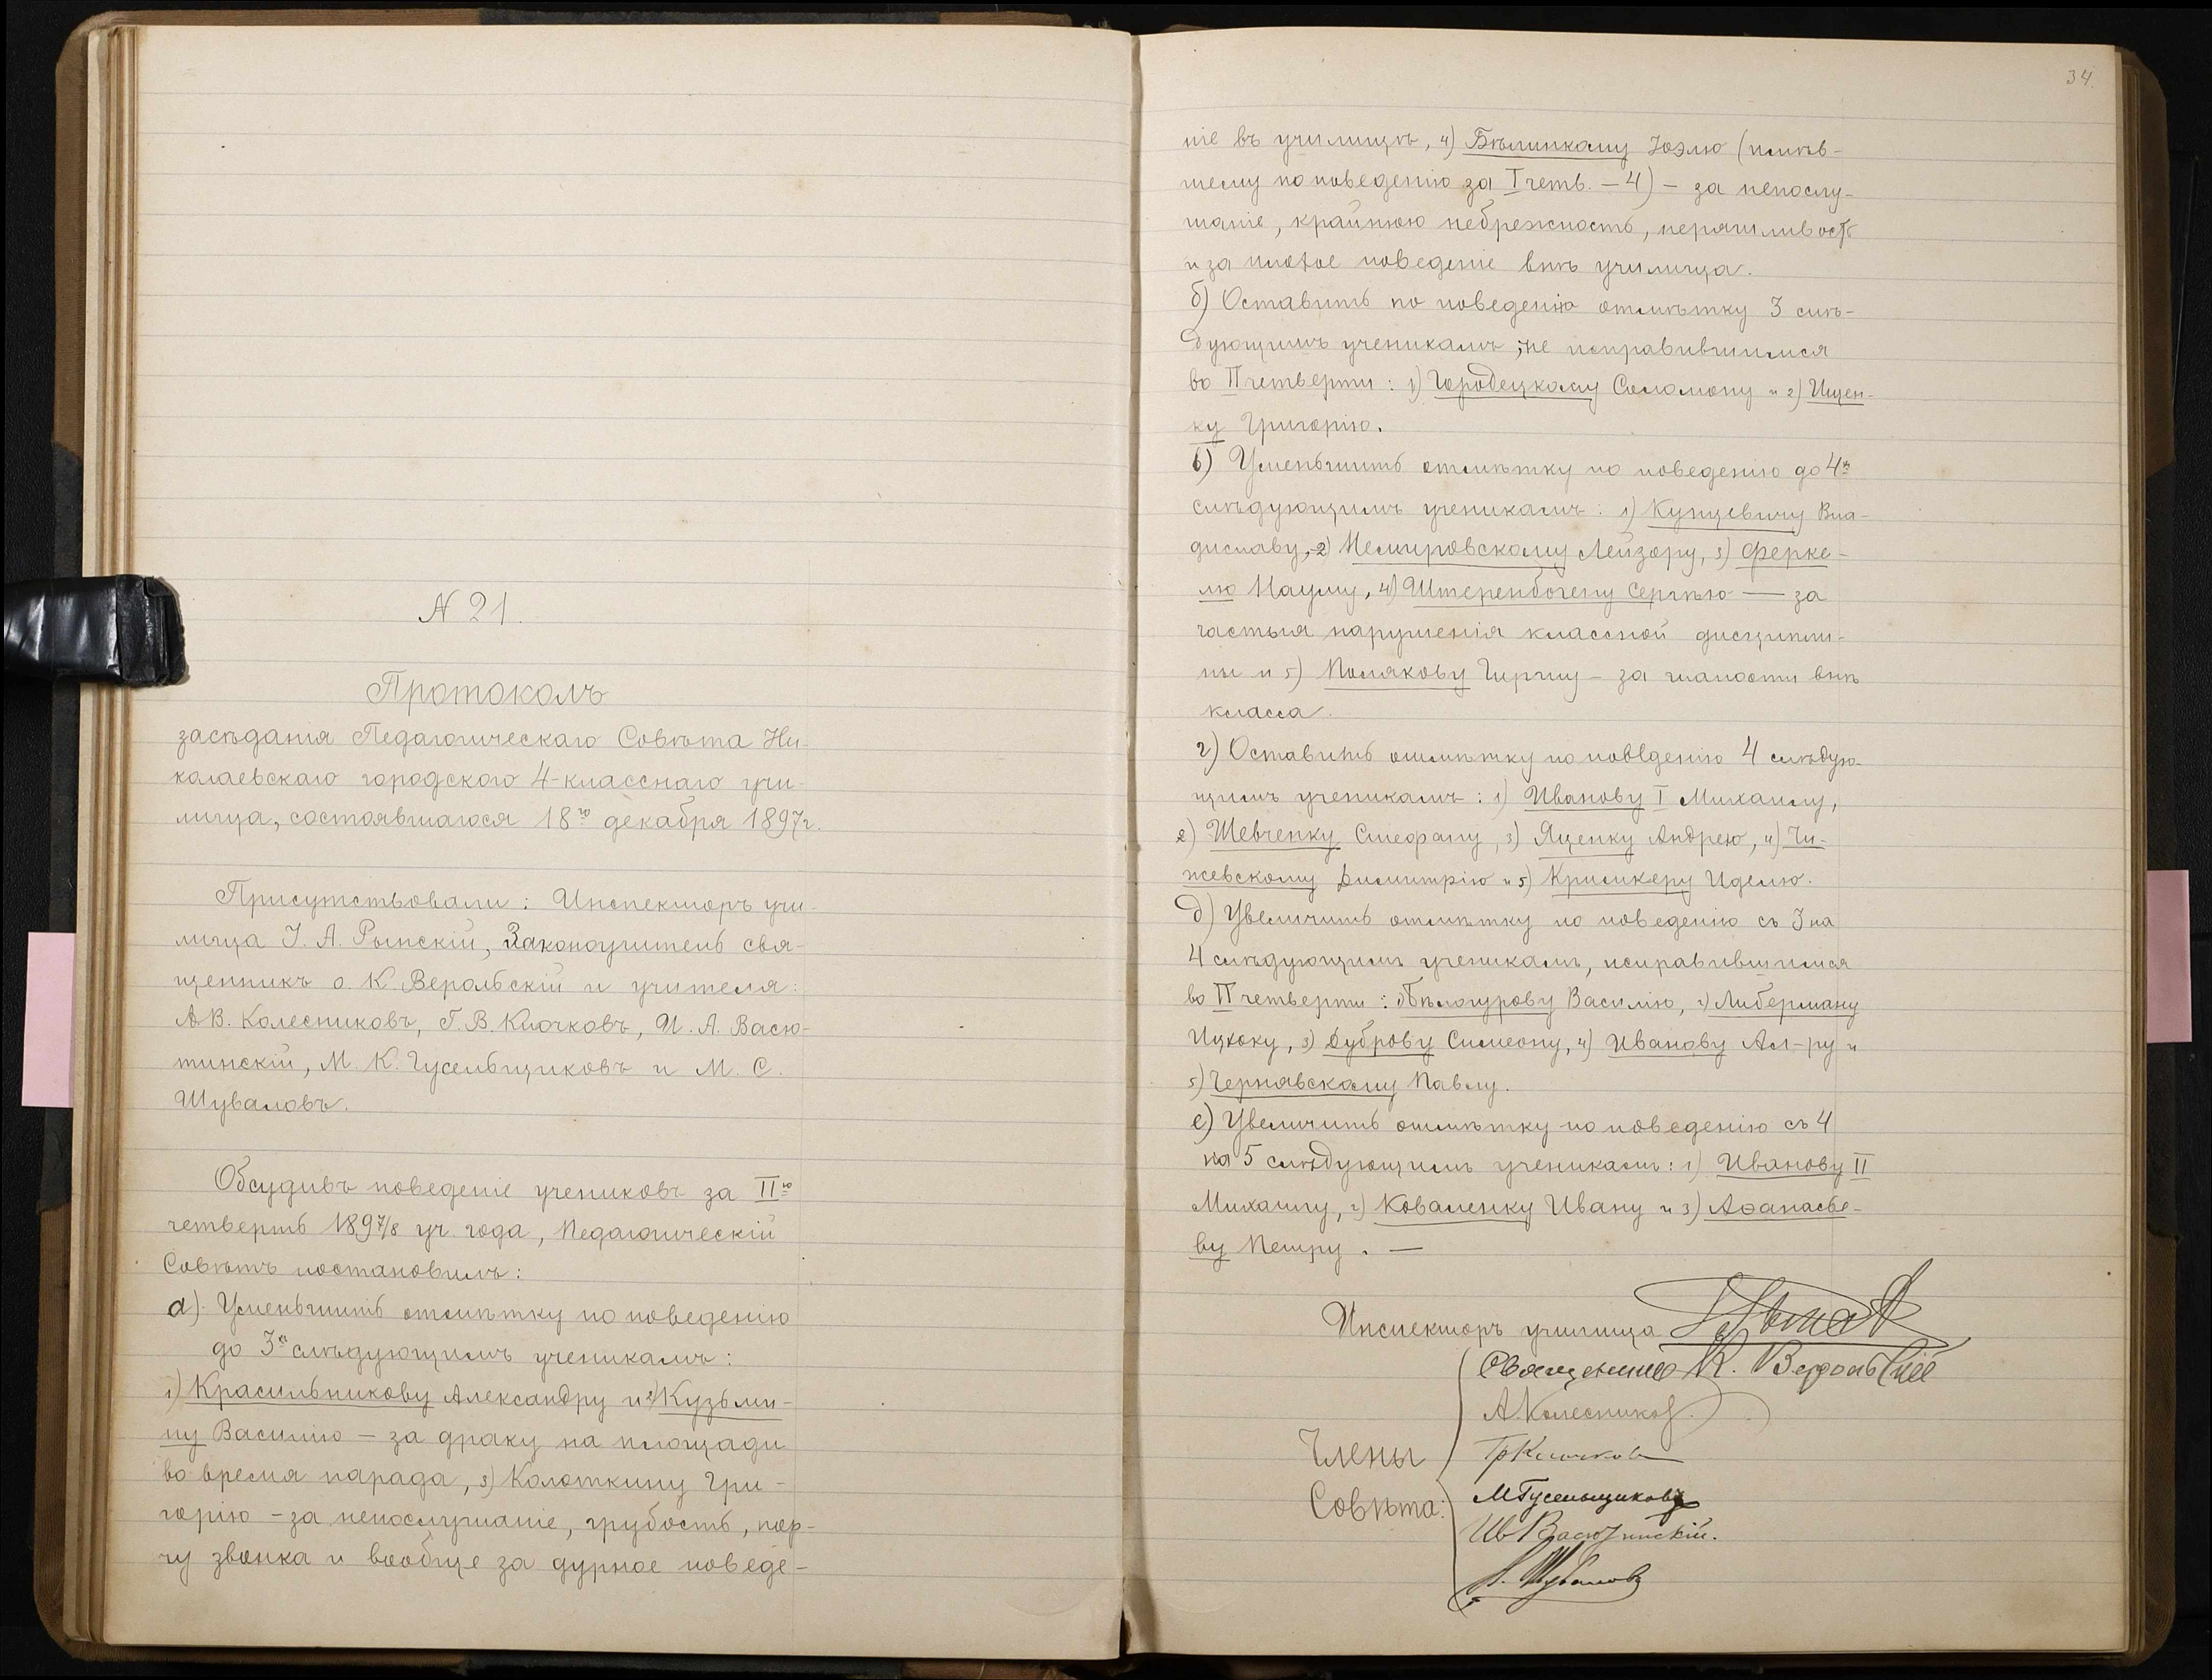 N 21.
Протоколъ
засѣданія Педагогическаго Совѣта Ни-
колаевскаго городского 4-класснаго учи-
лища, состоявшагося 18го декабря 1897г.
Присутствовали: Инспекторъ учи-
лища І. А. Рыпскій, Законоучитель свя-
щенникъ о. К. Верольскій и учителя:
А.В. Колесниковъ, Г. В. Клочковъ, И. А. Васю-
тинскій, М. К. Гусельщиковъ и М. С.
Шуваловъ.
Обсудивъ поведеніе учениковъ за IIю
четверть 1897/8 уч. года, Педагогическій
Совѣтъ постановилъ:
а) Уменьшить отмѣтку по поведенію
до 3х слѣдующимъ ученикамъ:
1) Красильникову Александру и 2) Кузьми-
ну Василію — за драку на площади
во время парада, 3) Колоткину Гри-
горію — за непослушаніе, грубость, пор-
чу звонка и вообще за дурное поведе-
34.
ніе въ училищѣ, 4) Бѣлинкому Іоэлю (имѣв-
шему по поведенію за I четв. — 4) — за непослу-
шаніе, крайнюю небрежность, неряшливость
и за плохое поведеніе внѣ училища.
б) Оставить по поведенію отмѣтку 3 слѣ-
дующимъ ученикамъ, не исправившимся
во II четверти: 1) Городецкому Соломону и 2) Ищен-
ку Григорію.
в) Уменьшить отмѣтку по поведенію до 4х
слѣдующимъ ученикамъ: 1) Кунцевичу Вла-
диславу, 2) Немировскому Лейзору, 3) Ферке-
лю Науму, 4) Штеренбогену Сергѣю — за
частыя нарушенія классной дисципли-
ны и 5) Полякову Гиршу — за шалости внѣ
класса.
г) Оставить отмѣтку по поведенію 4 слѣдую-
щимъ ученикамъ: 1) Иванову I Михаилу,
2) Шевченку Стефану, 3) Яценку Андрею, 4) Чи-
жевскому Димитрію и 5) Кримкеру Иделю.
д) Увеличить отмѣтку по поведенію съ 3 на
4 слѣдующимъ ученикамъ, исправившимся
во II четверти: 1) Бѣлогурову Василію, 2) Либерману
Ицхоку, 3) Дуброву Симеону, 4) Иванову Ал-ру и
5) Чернявскому Павлу.
е) Увеличить отмѣтку по поведенію съ 4
на 5 слѣдующимъ ученикамъ: 1) Иванову II
Михаилу, 2) Коваленку Ивану и 3) Аѳанасье-
ву Петру. —
Инспекторъ училища
Священникъ К. Верольскій
А. Колесников.
Члены Гр Клочков
Совѣта: М Гусельщиковъ
Ив Васютинскій.
М. Шуваловъ